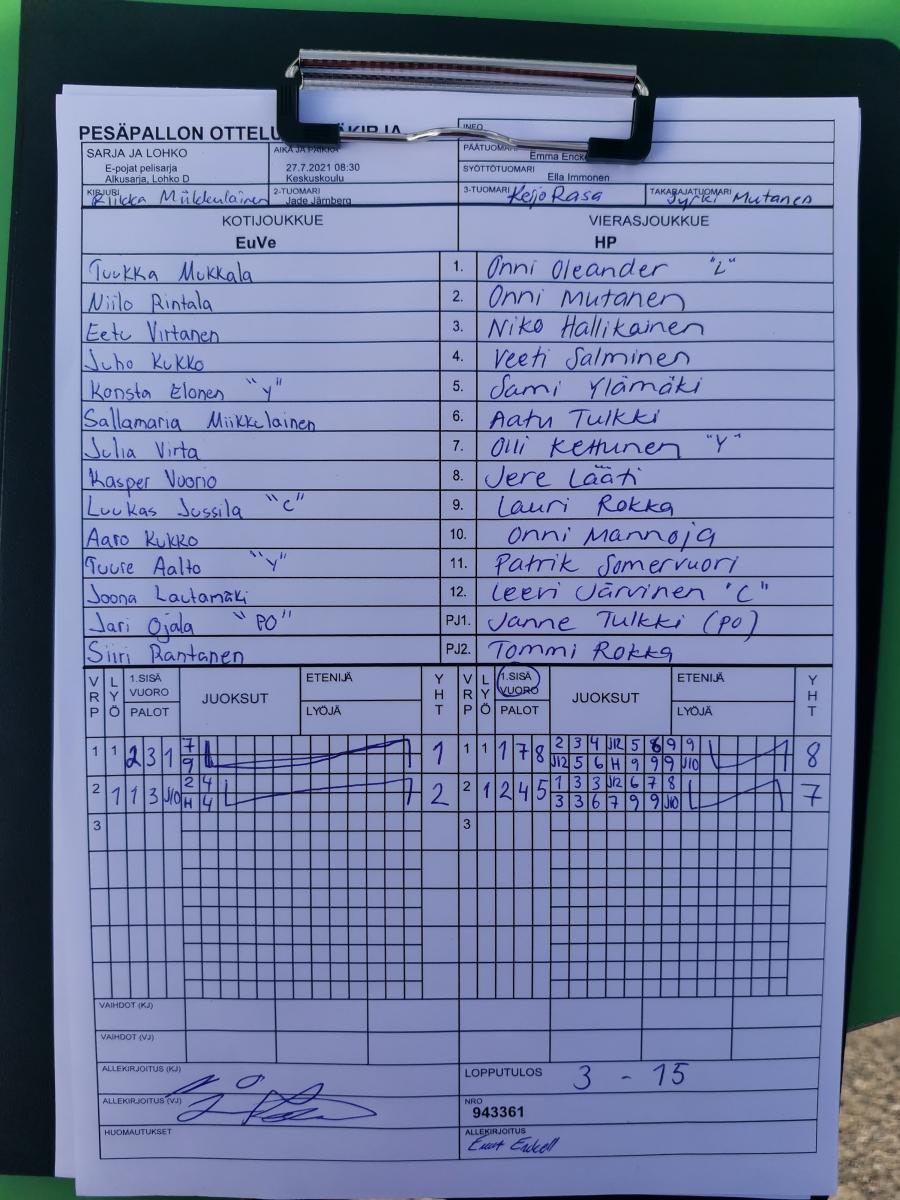 PESÄPALLON OTTELU
INFO
SARJA JA LOHKO
E-pojat pelisarja
Alkusarja, Lohko D
AIKA JA PAIKKA
27.7.2021 08:30
Keskuskoulu
PÄÄTUOMARI
Emma
SYÖTTÖTUOMARI
Ella Immonen
KIRJURI Riikka Miikkulainen
2-TUOMARI
Jade Järnberg
3-TUOMARI Keijo Rasa
TAKARAJATUOMARI Jyrki Mutanen
KOTIJOUKKUE VIERASJOUKKUE
EuVe HP
Tuukka Mukkala 1. Onni Oleander "L"
Niilo Rintala 2. Onni Mutanen
Eetu Virtanen 3. Niko Hallikainen
Juho Kukko 4. Veeti Salminen
Konsta Elonen "Y" 5. Sami Ylämäki
Sallamaria Miikkulainen 6. Aatu Tulkki
Julia Virta 7. Olli Kettunen "Y"
Kasper Vuorio 8. Jere Lääti
Luukas Jussila "C" 9. Lauri Rokka
Aaro Kukko 10. Onni Mannoja
Tuure Aalto "Y" 11. Patrik Somervuori
Joona Lautamäki 12. Leevi Järvinen "C"
Jari Ojala "PO" PJ1. Janne Tulkki (PO)
Siiri Rantanen PJ2. Tommi Rokka
VRP LYÖ 1.SISÄ VUORO PALOT JUOKSUT ETENIJÄ LYÖJÄ YHT VRP LYÖ 1.SISÄ VUORO PALOT JUOKSUT ETENIJÄ LYÖJÄ YHT
1 1 2 3 1 7 1 1 1 1 7 8 2 3 4 J12 5 8 9 9 8
9 J12 5 6 H 9 9 9 J10
2 1 1 3 J10 2 4 2 2 1 2 4 5 1 3 3 J12 6 7 8 7
H 4 3 3 6 7 9 9 J10
3 3
VAIHDOT (KJ)
VAIHDOT (VJ)
ALLEKIRJOITUS (KJ)
LOPPUTULOS 3 - 15
ALLEKIRJOITUS (VJ)
NRO
943361
HUOMAUTUKSET
ALLEKIRJOITUS